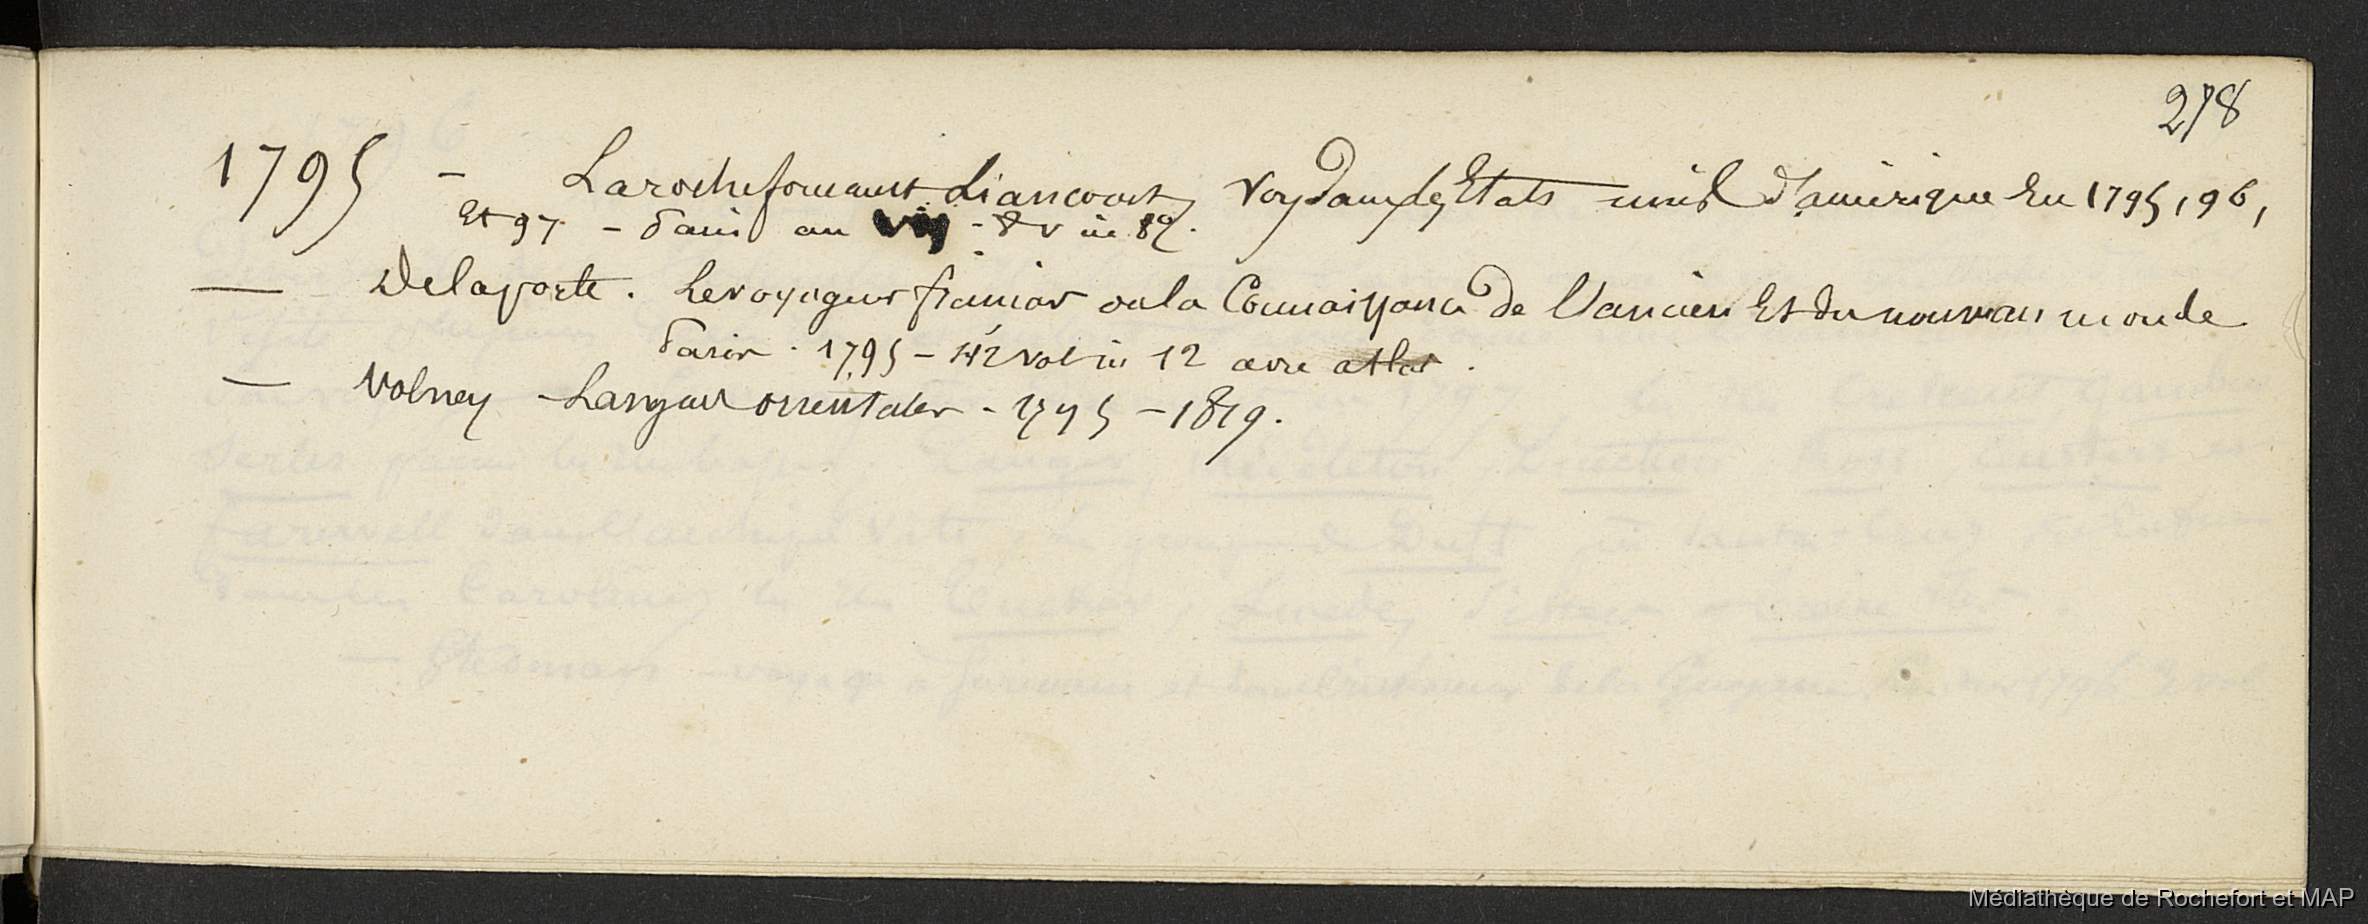 278
1795 - Larochefoucault Liancourt, Voy dans les Etats unis d'amérique En 1795, 96,
Et 97 - Paris an VII - 8 v in 8°.
— Delaporte. Le voyageur francais ou la Connaissance de l'ancien Et du nouveau monde
Paris. 1795 - 42 vol in 12 avec atlas.
— Volney - Langues orientales - 1795 - 1819.
Médiathèque de Rochefort et MAP